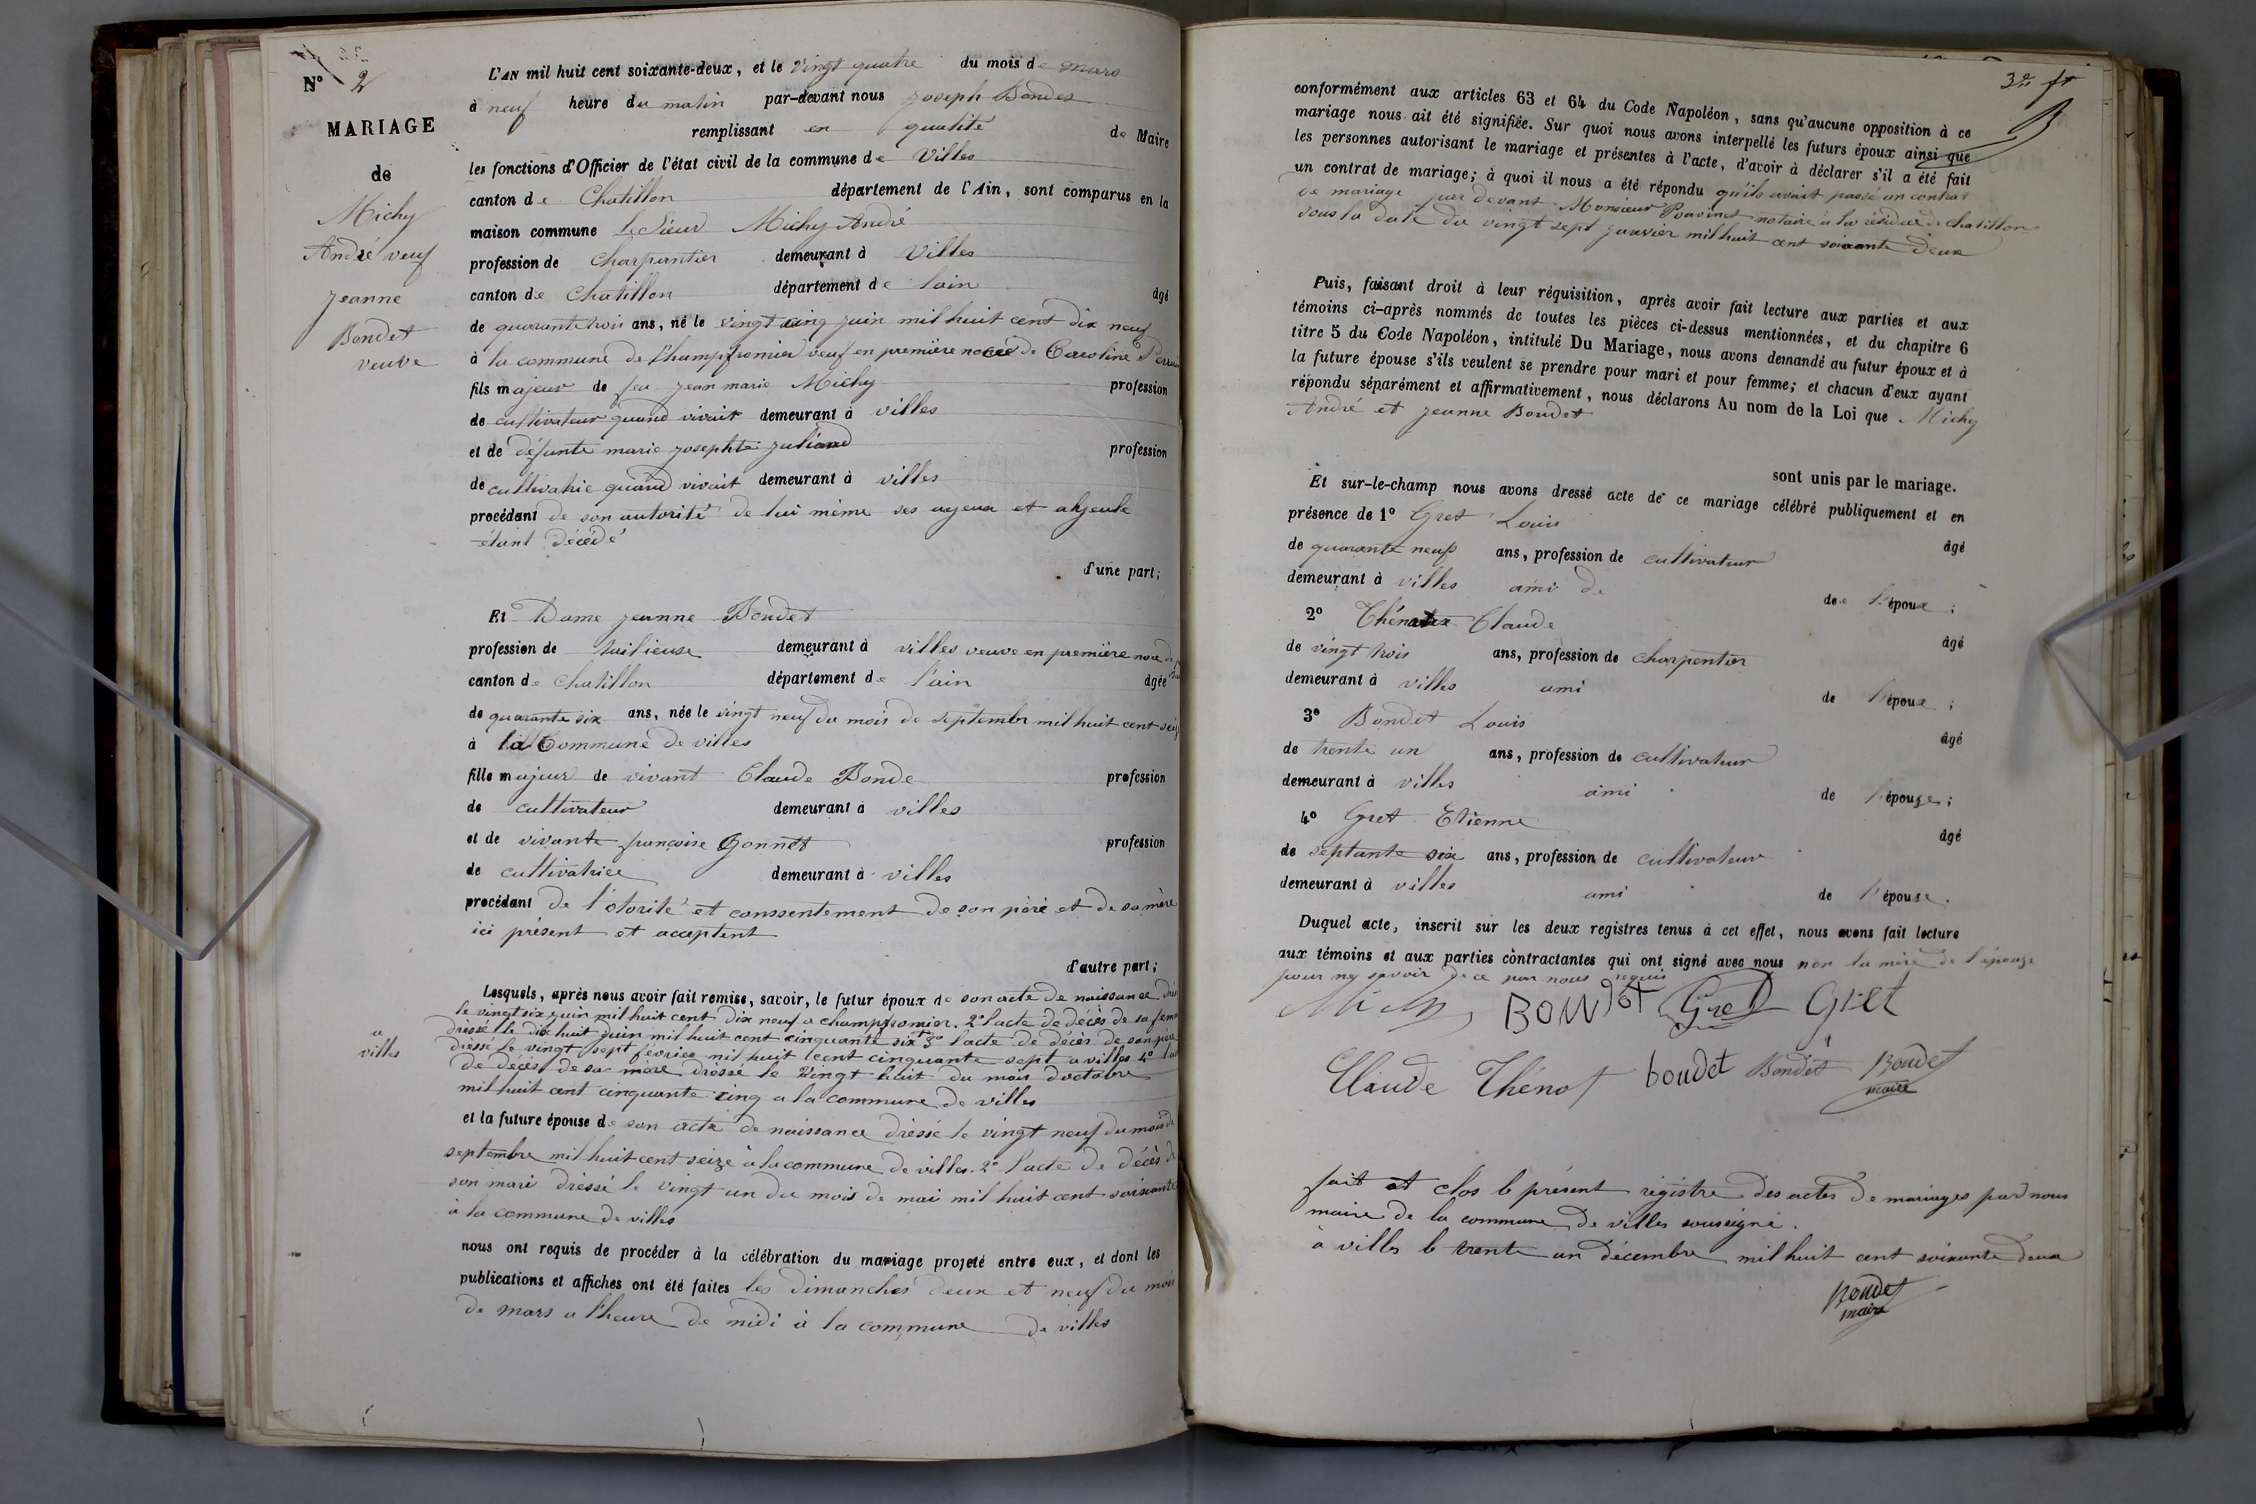 N° 2
MARIAGE
de
Michy
André veuf
Jeanne
Boudet
veuve
L'AN mil huit cent soixante-deux, et le vingt quatre du mois de mars
à neuf heure du matin par-devant nous Joseph Boudet
remplissant en qualité de Maire
les fonctions d'Officier de l'état civil de la commune de Villes
canton de Chatillon département de l'Ain, sont comparus en la
maison commune le Sieur Michy André
profession de Charpantier demeurant à Villes
canton de Chatillon département de lain âgé
de quarante trois ans, né le vingt cinq juin mil huit cent dix neuf
à la commune de Champfromier veuf en première noce de Caroline
fils majeur de feu Jean marie Michy profession
de cultivateur quand vivait demeurant à villes
et de défunte marie Josephte Juliand profession
de cultivatrie quand vivait demeurant à villes
procédant de son autorité de lui même ses ayeux et ahyeule
étant décédé
d'une part;
Et Dame Jeanne Boudet
profession de tailieuse demeurant à villes veuve en première noce de
canton de Chatillon département de l'ain âgée
de quarante six ans, née le vingt neuf du mois de septembre mil huit cent seize
à la Commune de villes
fille majeur de vivant Claude Bonde profession
de cultivateur demeurant à villes
et de vivante françoise Gonnet profession
de cultivatrice demeurant à villes
procédant de l'otorité et conssentement de son père et de sa mère
ici présent et acceptent
d'autre part;
Lesquels, après nous avoir fait remise, savoir, le futur époux de son acte de naissance
le vingt six juin mil huit cent dix neuf a champfromier. 2° l'acte de décès de sa fem
a
villes
dressé le dix huit juin mil huit cent cinquante six 3° l'acte de décès de son père
dressé le vingt sept février mil huit cent cinquante sept a villes 4° l'ac
de décès de sa mère dressé le vingt huit du mois d'octobre
mil huit cent cinquante cinq a la commune de villes
et la future épouse de son acte de naissance dressé le vingt neuf du mois de
septembre mil huit cent seize à la commune de villes. 2° l'acte de décès de
son mari dressé le vingt un du mois de mai mil huit cent soissante
à la commune de villes
nous ont requis de procéder à la célébration du mariage projeté entre eux, et dont les
publications et affiches ont été faites les dimanches deux et neuf du mois
de mars a l'heure de midi à la commune de villes
conformément aux articles 63 et 64 du Code Napoléon, sans qu'aucune opposition à ce
mariage nous ait été signifiée. Sur quoi nous avons interpellé les futurs époux ainsi que
les personnes autorisant le mariage et présentes à l'acte, d'avoir à déclarer s'il a été fait
un contrat de mariage; à quoi il nous a été répondu qu'ils avait passé un contrat
de mariage par devant Monsieur notaire à la résidence de chatillon
sous la date du vingt sept janvier mil huit cent soixante deux
Puis, faisant droit à leur réquisition, après avoir fait lecture aux parties et aux
témoins ci-après nommés de toutes les pièces ci-dessus mentionnées, et du chapitre 6
titre 5 du Code Napoléon, intitulé Du Mariage, nous avons demandé au futur époux et à
la future épouse s'ils veulent se prendre pour mari et pour femme; et chacun d'eux ayant
répondu séparément et affirmativement, nous déclarons Au nom de la Loi que Michy
André et Jeanne Boudet
sont unis par le mariage.
Et sur-le-champ nous avons dressé acte de ce mariage célébré publiquement et en
présence de 1° Gret Louis âgé
de quarante neuf ans, profession de cultivateur
demeurant à villes ami de de l'époux;
2° Claude âgé
de vingt trois ans, profession de charpentier
demeurant à villes ami de l'époux;
3° Bondet Louis âgé
de trente un ans, profession de cultivateur
demeurant à villes ami de l'épouse;
4° Gret Etienne âgé
de septante six ans, profession de cultivateur
demeurant à villes ami de l'épouse.
Duquel acte, inscrit sur les deux registres tenus à cet effet, nous avons fait lecture
aux témoins et aux parties contractantes qui ont signé avec nous non la mère de l'épouse
pour ny savoir de ce par nous requis
Michy BOUdet Gret Gret
Claude Thénot boudet Bondet Boudet
maire
fait et clos le présent régistre des actes de mariages par nous
maire de la commune de villes soussigné.
à villes le trente un décembre mil huit cent soixante deux
Boudet
maire